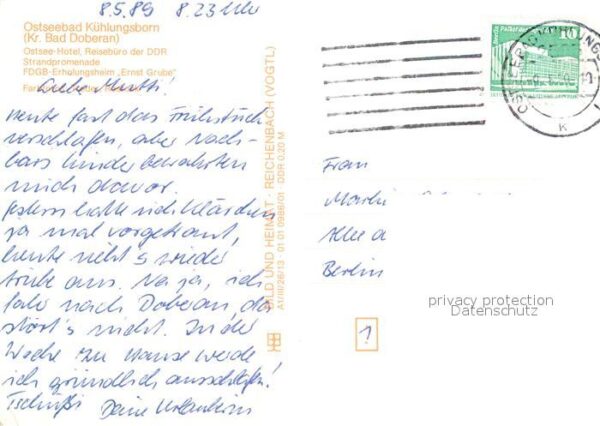 8.5.89 8.23 Uhr
Ostseebad Kühlungsborn
(Kr. Bad Doberan)
Ostsee-Hotel, Reisebüro der DDR
Strandpromenade
FDGB-Erholungsheim „Ernst Grube"
Liebe Mutti!
Heute fast das Frühstück
verschlafen, aber Nach-
bars Kinder bewahrten
mich davor.
Gestern hatte sich
ja mal vorgetraut,
heute sieht's wieder
trübe aus. Na ja, ich
fahr nach Doberan, da
stört's nicht. In der
Woche zu Hause werde
ich gründlich ausschlafen!
Tschüßi Deine Urlauberin
BILD UND HEIMAT · REICHENBACH (VOGTL)
A1/III/26/13 DDR 0,20 M
10
Frau
Berlin
privacy protection
Datenschutz
1